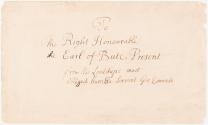 To
the Right Honourable
the Earl of Bute, Present
from his Lordships most
obliged humble Servant